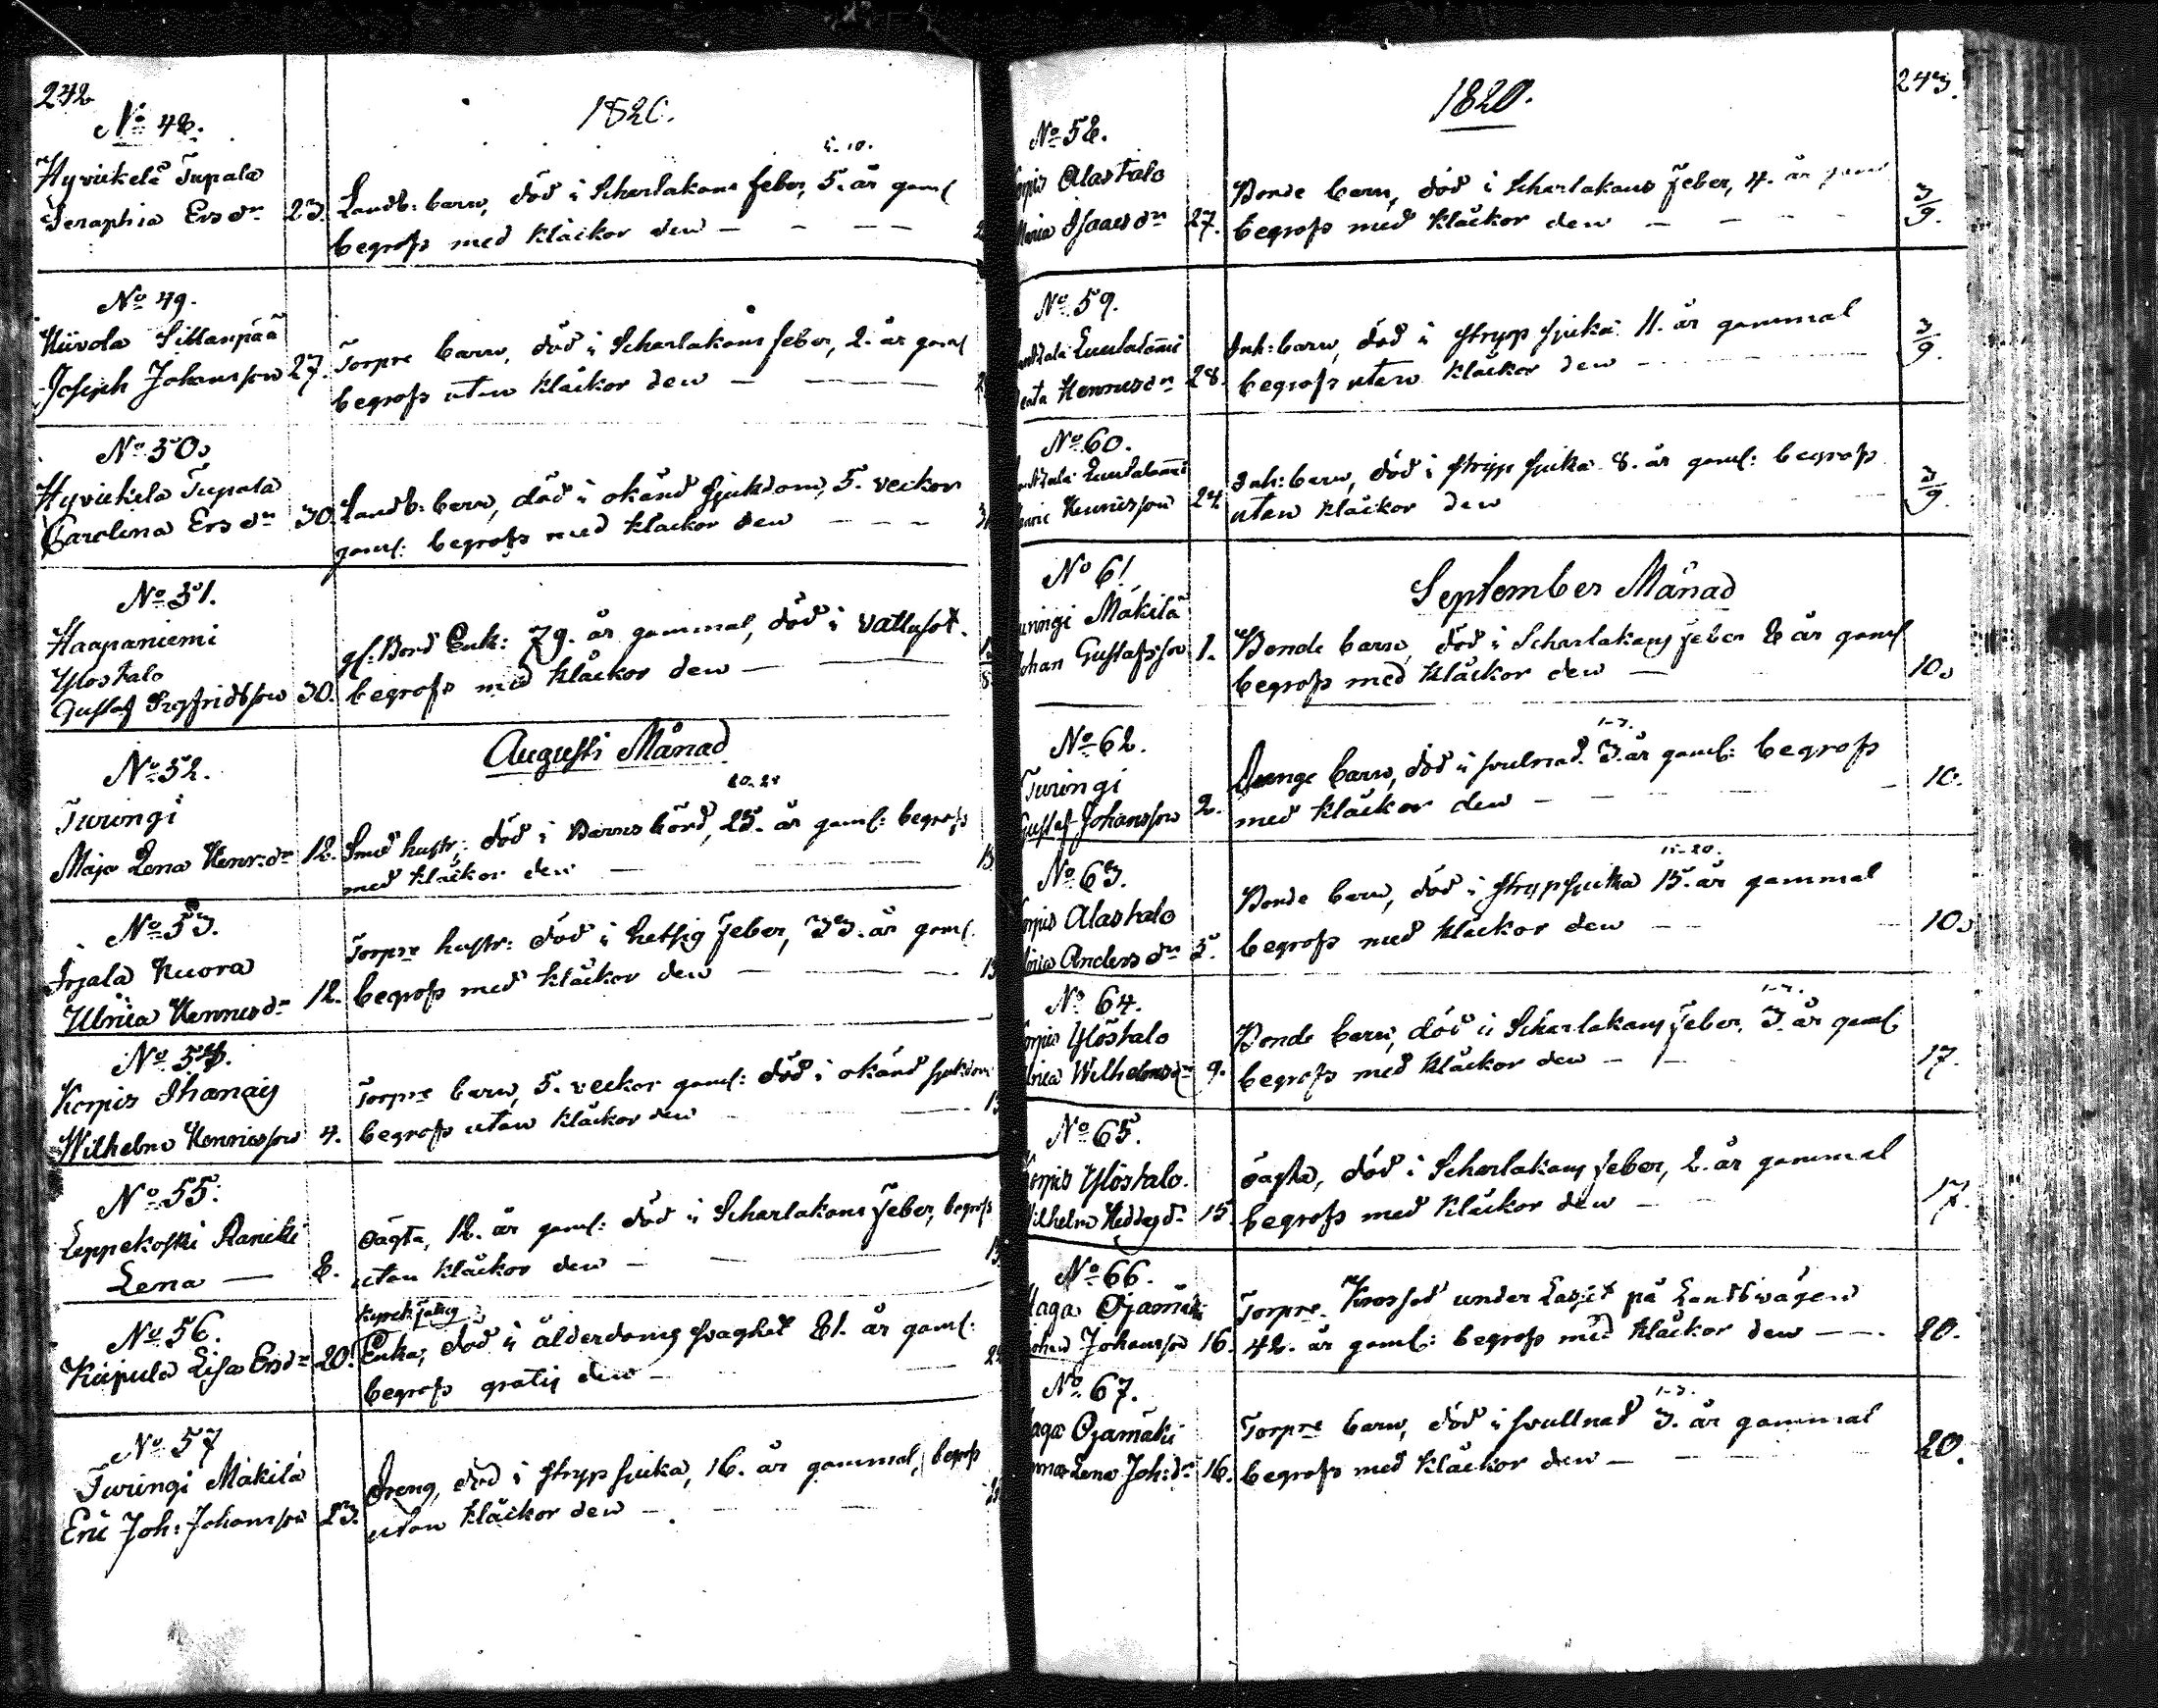 242
1820.
No 48.
5.10.
Hyvickelä Tupala
Seraphia Ersdr 23. Landb: barn, död i Scharlakans feber, 5. år gaml
begrofs med Kläckor den — — — —
No 49.
Kiivola Sillanpää
Joseph Johansson 27. Torpre barn, död i Scharlakans feber, 2. år gaml
begrofs utan Kläckor den — —
No 50.
Hyvickelä Tupala
Carolina Ersdr 30. Landb: barn, död i okänd sjukdom, 5. veckor
gaml: begrofs med Kläckor den — — —
No 51.
Haapaniemi
Ylöstalo
Gustaf Sigfridsson 30. gl: Bond Enk: 79. år gammal, död i Vattusot.
begrofs med Kläckor den — —
Augusti Månad
No 52.
20.25
Turingi
Maja Lena Henr:dr 12. Smed hustr: död i Barns börd, 25. år gaml: begrofs
med Kläckor den — 13
No 53.
Irjala Kuora
Ulrica Henricsdr 12. Torpre hustr: död i hetsig feber, 33. år gaml.
begrofs med Kläckor den — — 13
No 54.
Korpis Ihamäij
Wilhelm Henricsson 4. Torpre barn, 5. veckor gaml: död i okänd sjukdom
begrofs utan Kläckor den — 13
No 55.
Leppekoski Ranicki
Lena — 8. oägta, 12. år gaml: död i Scharlakans feber, begrofs
utan Kläckor den — 13
No 56.
Kiipula Lisa Ersdr 20. Enka, död i ålderdoms svaghet 81. år gaml:
begrofs gratis den —
No 57
Turingi Mäkilä
Eric Joh: Johansson 23. Dreng, död i strypsjuka, 16. år gammal, begrofs
utan Kläckor den —
243.
1820.
No 58.
Alastalo
Maria Isaacsdr 27. Bonde barn, död i Scharlakans feber, 4. år gaml
begrofs med Kläckor den — — 3/9.
No 59.
Henricsdr 28. Inh: barn, död i stryp sjuka 11. år gammal
begrofs utan Kläckor den — 3/9.
No 60.
Henricsson 24 Inh: barn, död i stryp sjuka 8. år gaml: begrofs
utan Kläckor den 3/9.
September Månad
No 61
Turingi Mäkilä
Johan Gustafsson 1. Bonde barn, död i Scharlakans feber 8 år gaml
begrofs med Kläckor den — 10.
No 62.
1-3.
Turingi
Gustaf Johansson 2. Drenge barn, död i svulnad. 3. år gaml: begrofs
med Kläckor den — 10.
No 63.
15-20.
Korpis Alastalo
Andersdr 5. Bonde barn, död i strypsjuka 15. år gammal
begrofs med Kläckor den — 10.
No 64.
1-3.
Korpis Ylöstalo
Ulrica Wilhelmsdr 9. Bonde barn, död i Scharlakans feber, 3. år gaml
begrofs med Kläckor den — 17.
No 65.
Korpis Ylöstalo.
15. oägta, död i Scharlakans feber, 2. år gammal
begrofs med Kläckor den — 17.
No 66.
Haga Ojamäki
Johan Johansson 16. Torpre. Krossad under Lasset på Landsvägen
42. år gaml: begrofs med Kläckor den — — 20.
No 67.
1-3.
Haga Ojamäki
Lena Joh:dr 16. Torpre barn, död i svullnad 3. år gammal
begrofs med Kläckor den — 20.